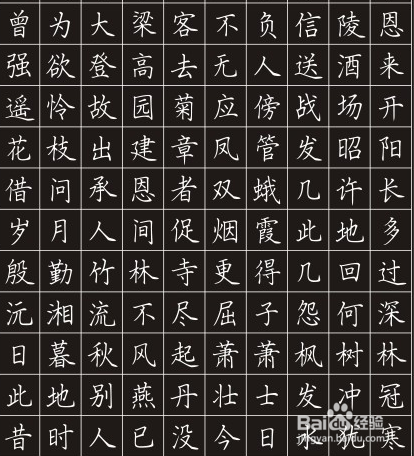 曾为大梁客不负信陵恩
强欲登高去无人送酒来
遥怜故园菊应傍战场开
花枝出建章凤管发昭阳
借问承恩者双蛾几许长
岁月人间促烟霞此地多
殷勤竹林寺更得几回过
沅湘流不尽屈子怨何深
日暮秋风起萧萧枫树林
此地别燕丹壮士发冲冠
昔时人已没今日水犹寒
Baidu 经验
jingyan.baidu.com